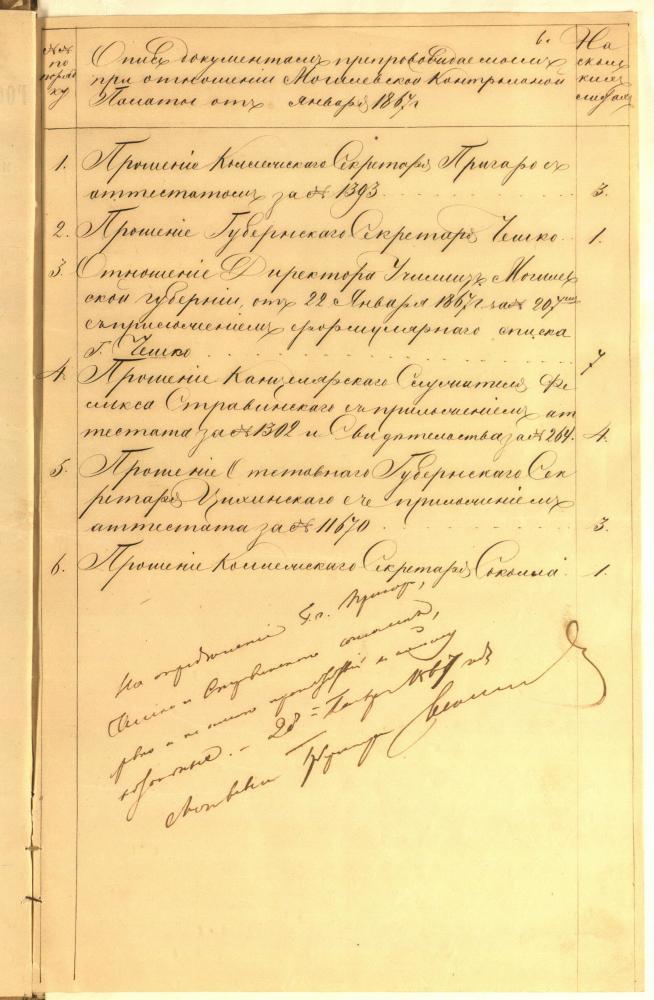 6.
№№ по порядку
На скольких листах
Опись документамъ препровождаемымъ
при отношеніи Могилевской Контрольной
Палаты отъ Января 1867 г
1. Прошеніе Коллежскаго Секретаря Пригаро съ
аттестатомъ за № 1393. 3.
2. Прошеніе Губернскаго Секретаря Чешко. 1.
3. Отношеніе Директора Училищъ Могилев
ской губерніи, отъ 22 Января 1867 г. за № 207
съ приложеніемъ формулярнаго списка
Г. Чешко 7
4. Прошеніе Канцелярскаго Служителя Фе
ликса Стравинскаго съ приложеніемъ ат
тестата за № 1302 и Свидѣтельства за № 264. 4.
5. Прошеніе Отставнаго Губернскаго Сек
ретаря Цихинскаго съ приложеніемъ
аттестата за № 11670 3.
6. Прошеніе Коллежскаго Секретаря Соколла 1.
На опредѣленіе Г.г.
Чешко и
28 Января 1867 г